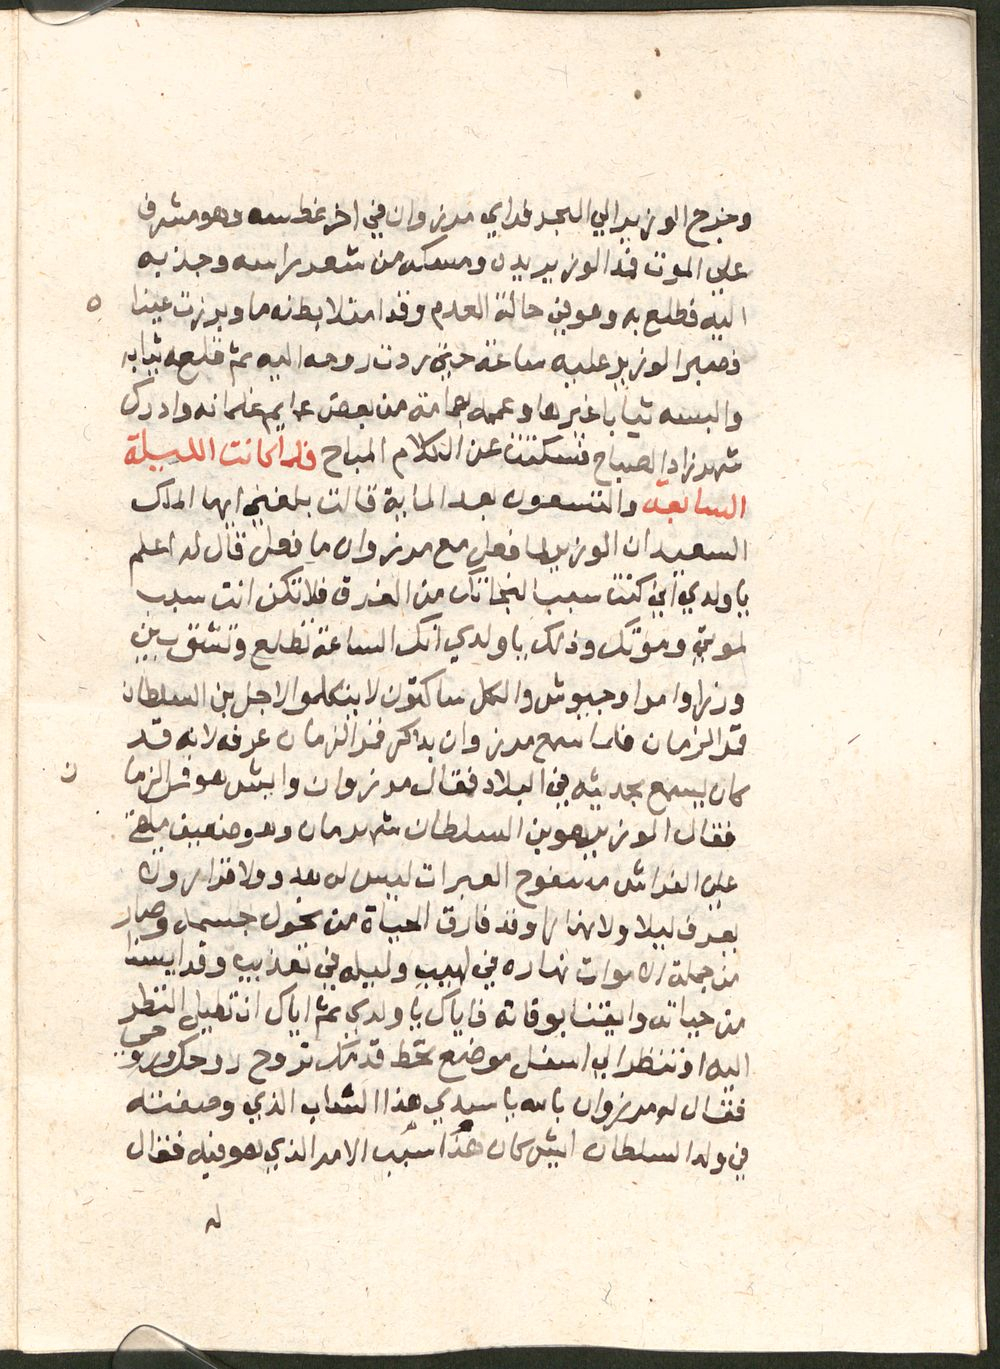 وخرج الوزير الي البحر فراي مرزوان في اخر غطسه وهو مشرف
علي الموت فمد الوزير يده ومسكه من شعر راسه وجذبه
اليه فطلع به وهو في حالة العدم وقد امتلا بطنه ما وبرزت عينا ه
فصبر الوزير عليه ساعة حتي ردت روحه اليه ثم قلعه ثيابه
والبسه ثيابا غيرها وعممه بعمامة من بعض عمايم غلمانه وادرك
شهرزاد الصباح فسكتت عن الكلام المباح فلما كانت الليلة
السابعة والتسعون بعد الماية قالت بلغني ايها الملك
السعيد ان الوزير لما فعل مع مرزوان ما فعل قال له اعلم
يا ولدي اني كنت سبب النجاتك من الغرق فلا تكن انت سبب
لموتي وموتك وذلك يا ولدي انك الساعة تطلع وتشق بين
وزرا وامرا وجيوش والكل ساكتون لا يتكلموا لاجل بن السلطان
قمر الزمان فلما سمع مرزوان بذكر قمر الزمان عرفه لانه قد
كان يسمع بحديثه في البلاد فقال مرزوان وايش هو قمر الزما ن
فقال الوزير هو بن السلطان شهرمان وهو ضعيف ملقي
علي الفراش مسفوح العبرات ليس له هدو ولا قرار ولا
يعرف ليلا ولا نهارا وقد فارق الحياة من نحول جسمه وصار
من جملة الاموات نهاره في لهيب وليله في تعذيب وقد ايسنا
من حياته وايقنا بوفاته فاياك يا ولدي ثم اياك ان تطيل النظر
اليه او تنظر الي اسفل موضع تحط قدمك تروح روحك وروحي
فقال له مرزوان بالله يا سيدي هذا الشاب الذي وصفته
في ولد السلطان ايش كان هذا سبب الامر الذي هو فيه فقال
له